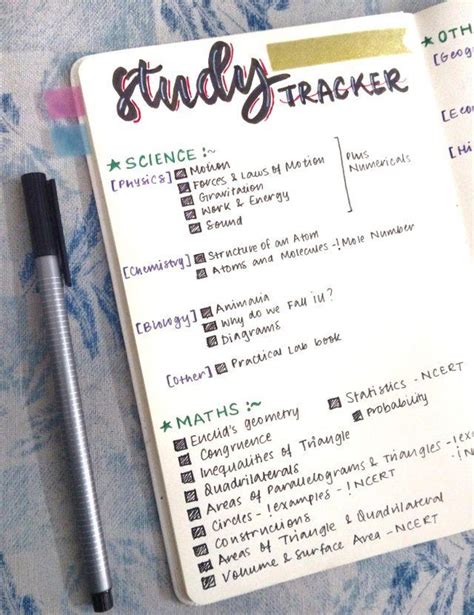 study TRACKER
★ SCIENCE :~
[Physics] Motion
Forces & Laws of Motion
Gravitation
Work & Energy
Sound
Plus
Numericals
[Chemistry] Structure of an Atom
Atoms and Molecules -! Mole Number
[Biology] Animalia
Why do we Fall ill?
Diagrams
[Other] Practical Lab book
★ MATHS :~
Euclid's geometry
Congruence
Inequalities of Triangle
Quadrilaterals
Areas of Parallelograms & Triangles -
Circles - !examples - !NCERT
Constructions
Areas of Triangle & Quadrilateral
Volume & Surface Area - NCERT
Statistics - NCERT
Probability
★ OTH
[Geog
[Econ
[Hi